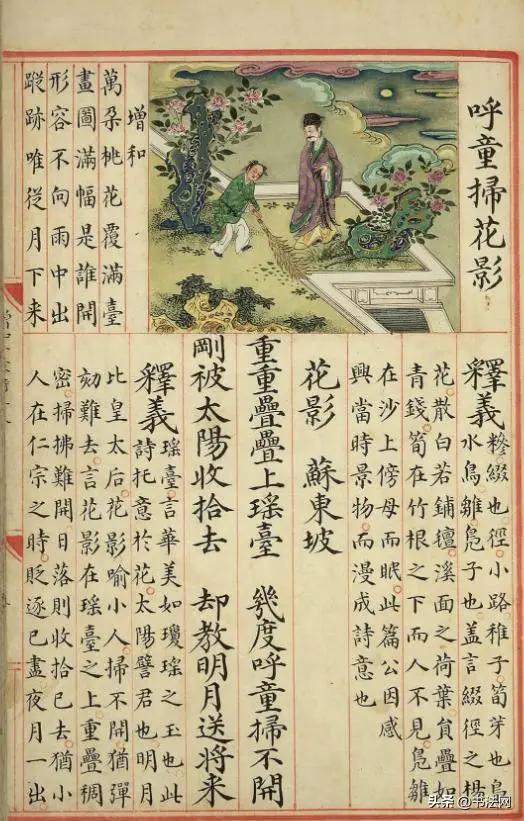 呼童掃花影
增和
萬朵桃花覆滿臺
畫圖滿幅是誰開
形容不向雨中出
蹤跡唯從月下来
釋義
糝綴也徑小路稚子筍芽也鳧
水鳥雛鳧子也蓋言綴徑之楊
花散白若鋪溪面之荷葉貟疊如
青錢筍在竹根之下而人不見鳧雛
在沙上傍母而眠此篇公因感
興當時景物而漫成詩意也
花影 蘇東坡
重重疊疊上瑤臺 幾度呼童掃不開
剛被太陽收拾去 却教明月送將来
釋義
瑤臺言華美如瓊瑤之玉也此
詩托意於花太陽譬君也明月
比皇太后花影喻小人掃不開猶彈
劾難去言花影在瑤臺之上重疊稠
密掃拂難開日落則收拾已去猶小
人在仁宗之時貶逐已盡夜月一出
头条 @书法网